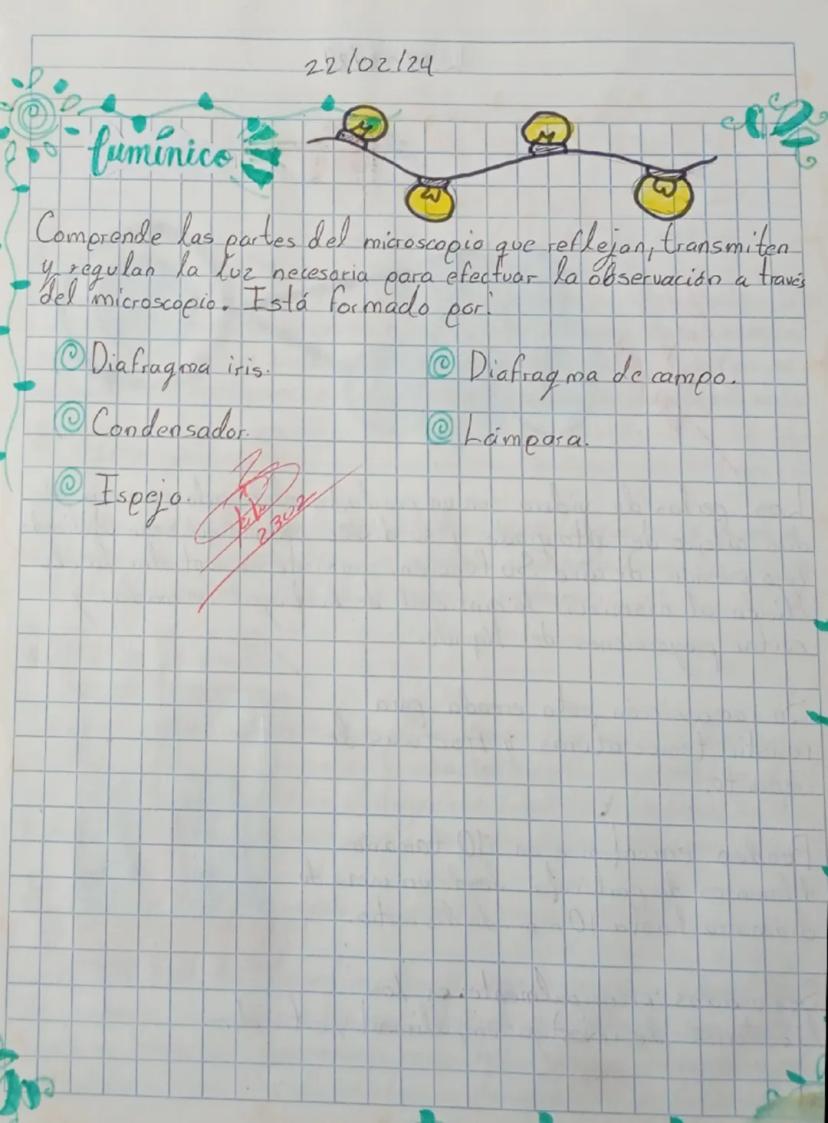 22/02/24
Lumínico
Comprende las partes del microscopio que reflejan, transmiten
y regulan la luz necesaria para efectuar la observación a través
del microscopio. Está formado por:
Diafragma iris.
Diafragma de campo.
Condensador.
Lámpara.
Espejo.
2302